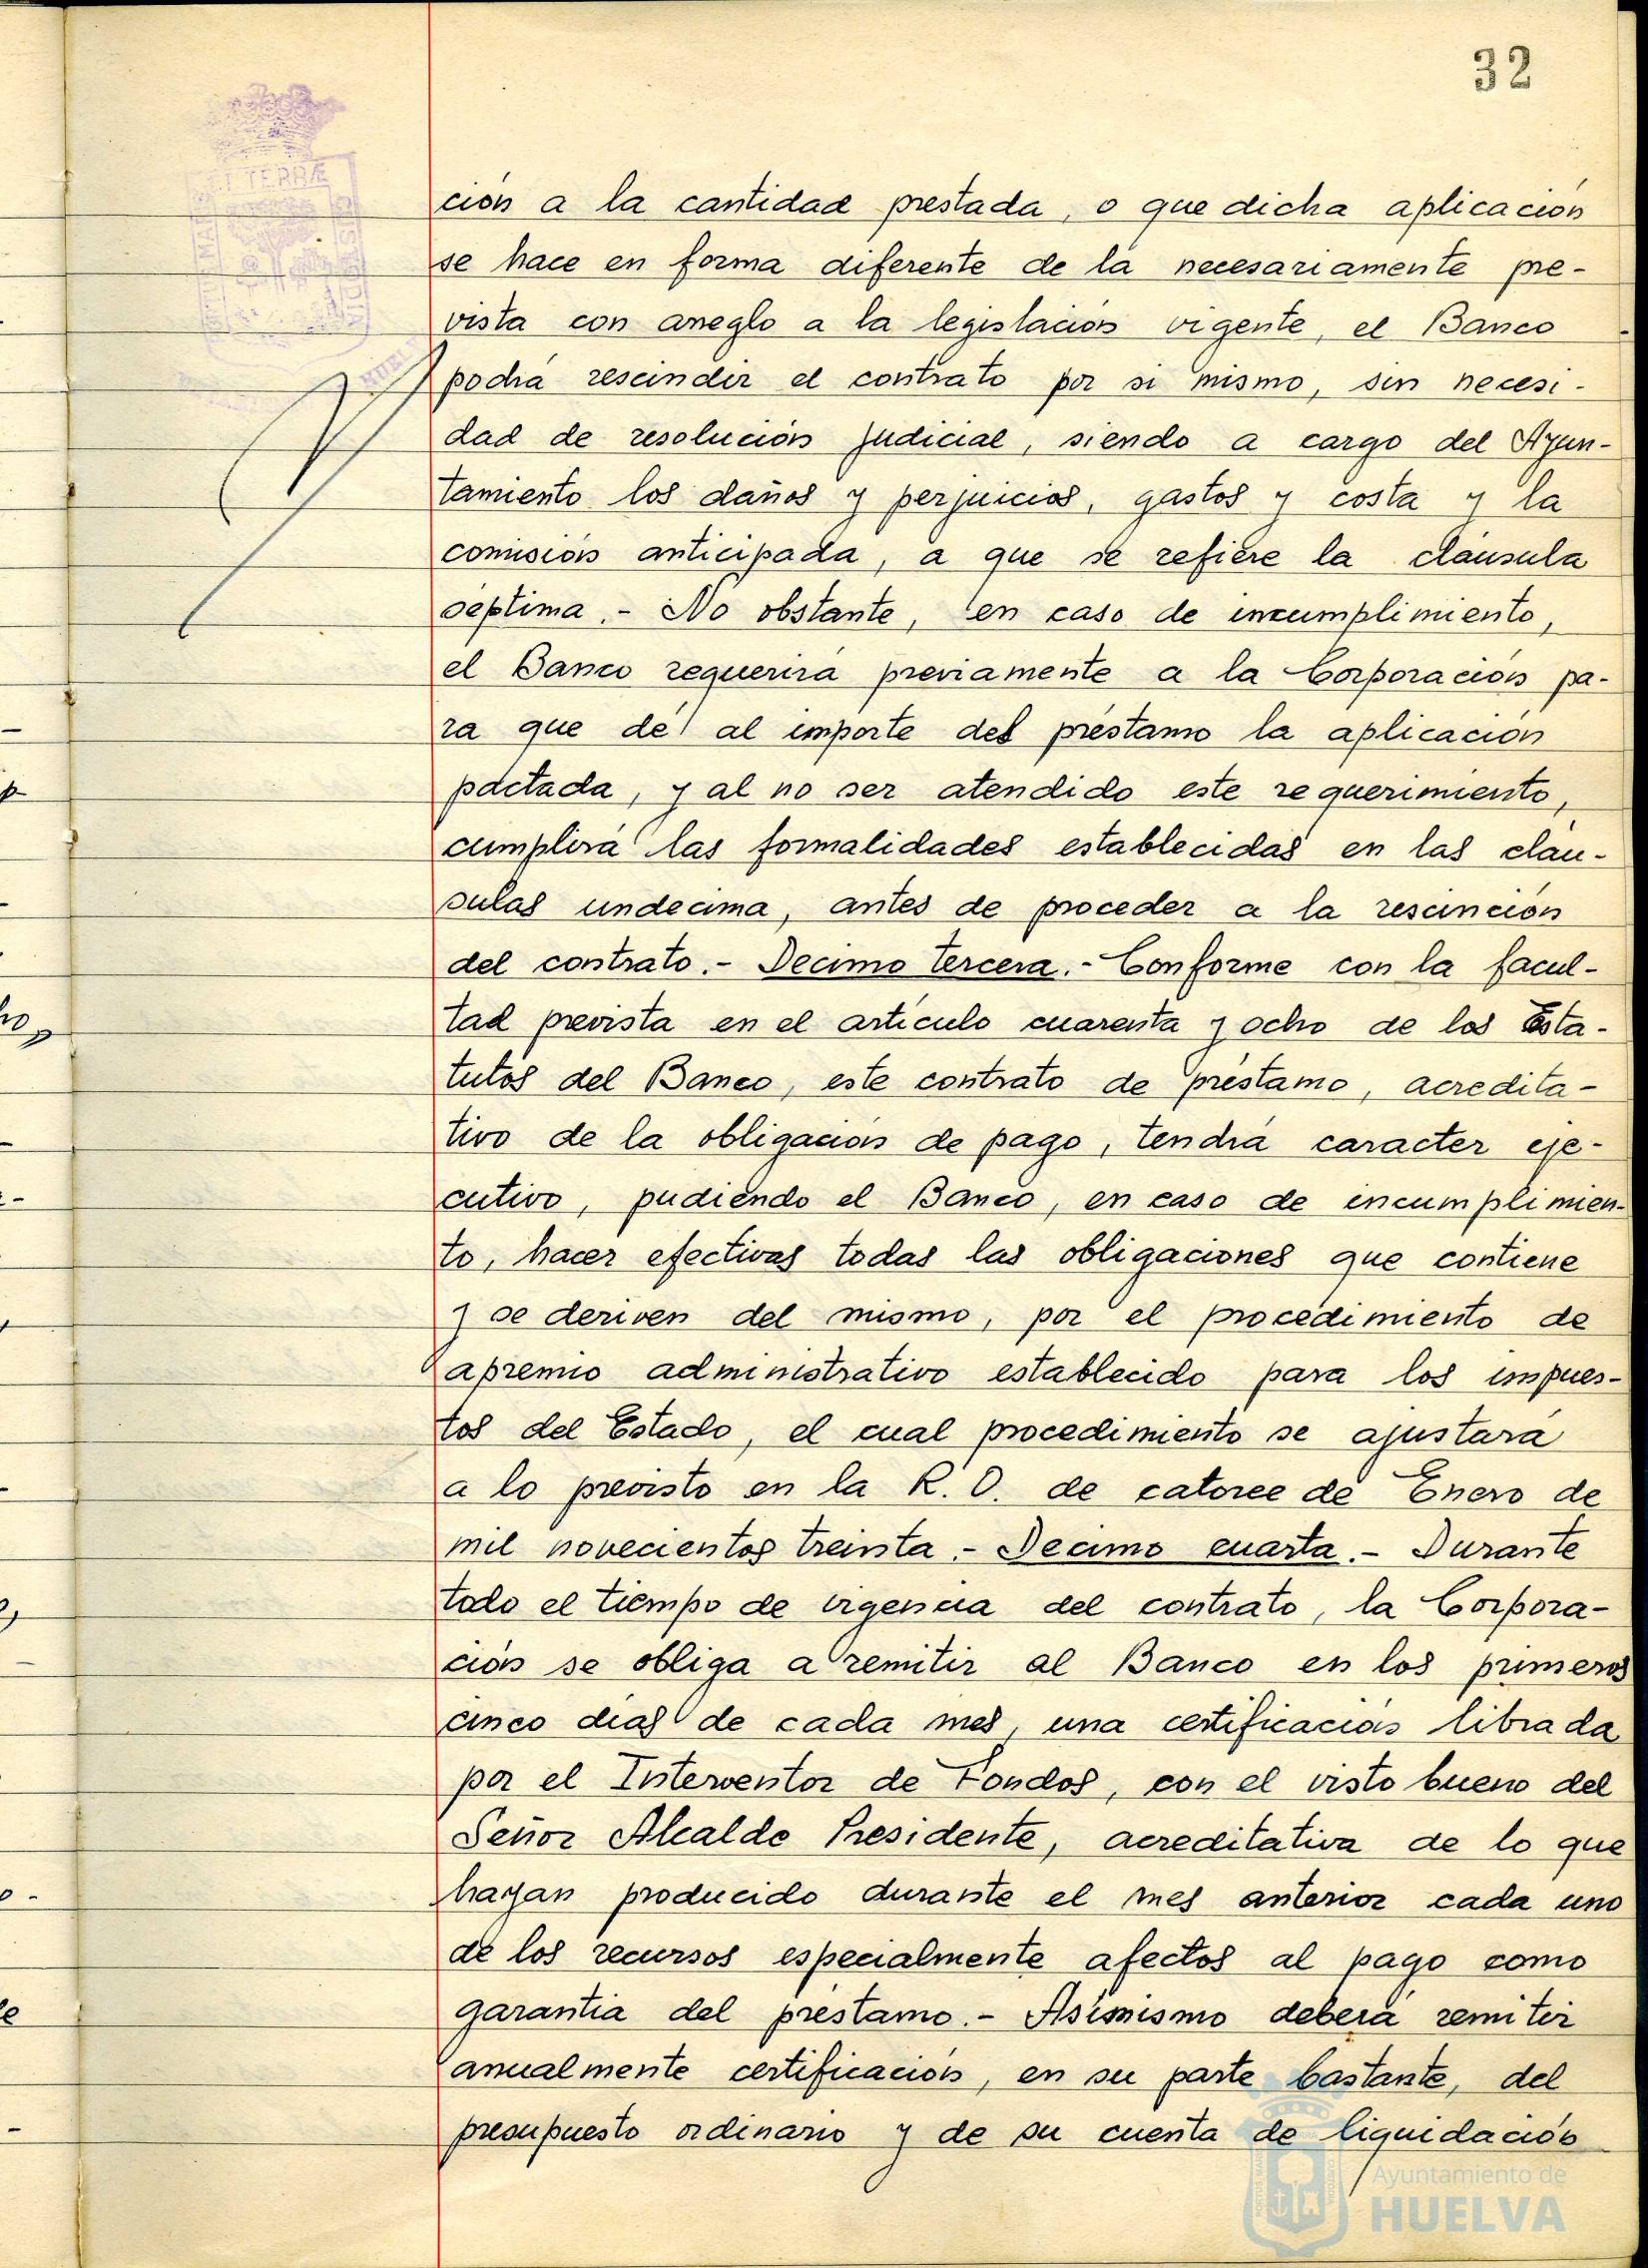 32
TERRÆ
ción a la cantidad prestada, o que dicha aplicación
se hace en forma diferente de la necesariamente pre-
vista con arreglo a la legislación vigente, el Banco
podrá rescindir el contrato por si mismo, sin necesi-
dad de resolución judicial, siendo a cargo del Ayun-
tamiento los daños y perjuicios, gastos y costa y la
comisión anticipada, a que se refiere la cláusula
séptima.- No obstante, en caso de incumplimiento,
el Banco requerirá previamente a la Corporación pa-
ra que dé al importe del préstamo la aplicación
pactada, y al no ser atendido este requerimiento,
cumplirá las formalidades establecidas en las cláu-
sulas undecima, antes de proceder a la rescinción
del contrato.- Decimo tercera.- Conforme con la facul-
tad prevista en el artículo cuarenta y ocho de los Esta-
tutos del Banco, este contrato de préstamo, acredita-
tivo de la obligación de pago, tendrá caracter eje-
cutivo, pudiendo el Banco, en caso de incumplimien-
to, hacer efectivas todas las obligaciones que contiene
y se deriven del mismo, por el procedimiento de
apremio administrativo establecido para los impues-
tos del Estado, el cual procedimiento se ajustará
a lo previsto en la R. O. de catorce de Enero de
mil novecientos treinta.- Decimo cuarta.- Durante
todo el tiempo de vigencia del contrato, la Corpora-
ción se obliga a remitir al Banco en los primeros
cinco días de cada mes, una certificación librada
por el Interventor de Fondos, con el visto bueno del
Señor Alcalde Presidente, acreditativa de lo que
hayan producido durante el mes anterior cada uno
de los recursos especialmente afectos al pago como
garantia del préstamo.- Asímismo deberá remitir
anualmente certificación, en su parte bastante, del
presupuesto ordinario y de su cuenta de liquidación
Ayuntamiento de
HUELVA